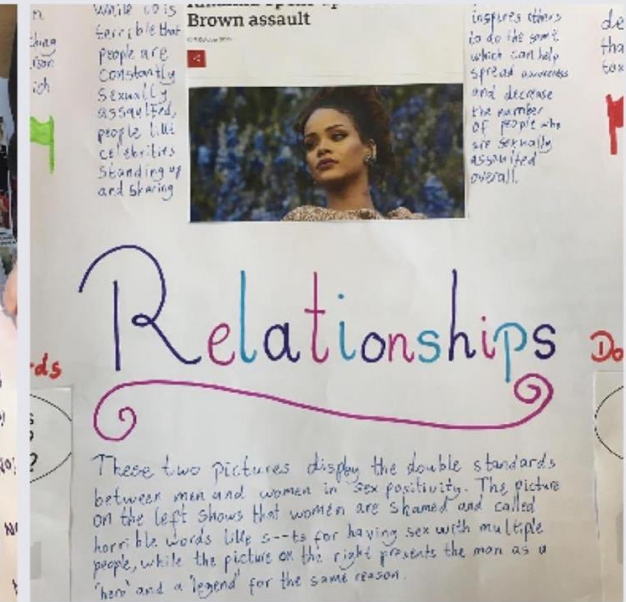 while it is
terrible that
people are
constantly
sexually
assaulted,
people like
celebrities
standing up
and sharing
Brown assault
inspires others
to do the same
which can help
spread awareness
and decrease
the number
of people who
are sexually
assaulted
overall.
Relationships
These two pictures display the double standards
between men and women in sex positivity. The picture
on the left shows that women are shamed and called
horrible words like s--ts for having sex with multiple
people, while the picture on the right presents the man as a
"hero" and a "legend" for the same reason.
n
ich
ds
?
de
tha
Do